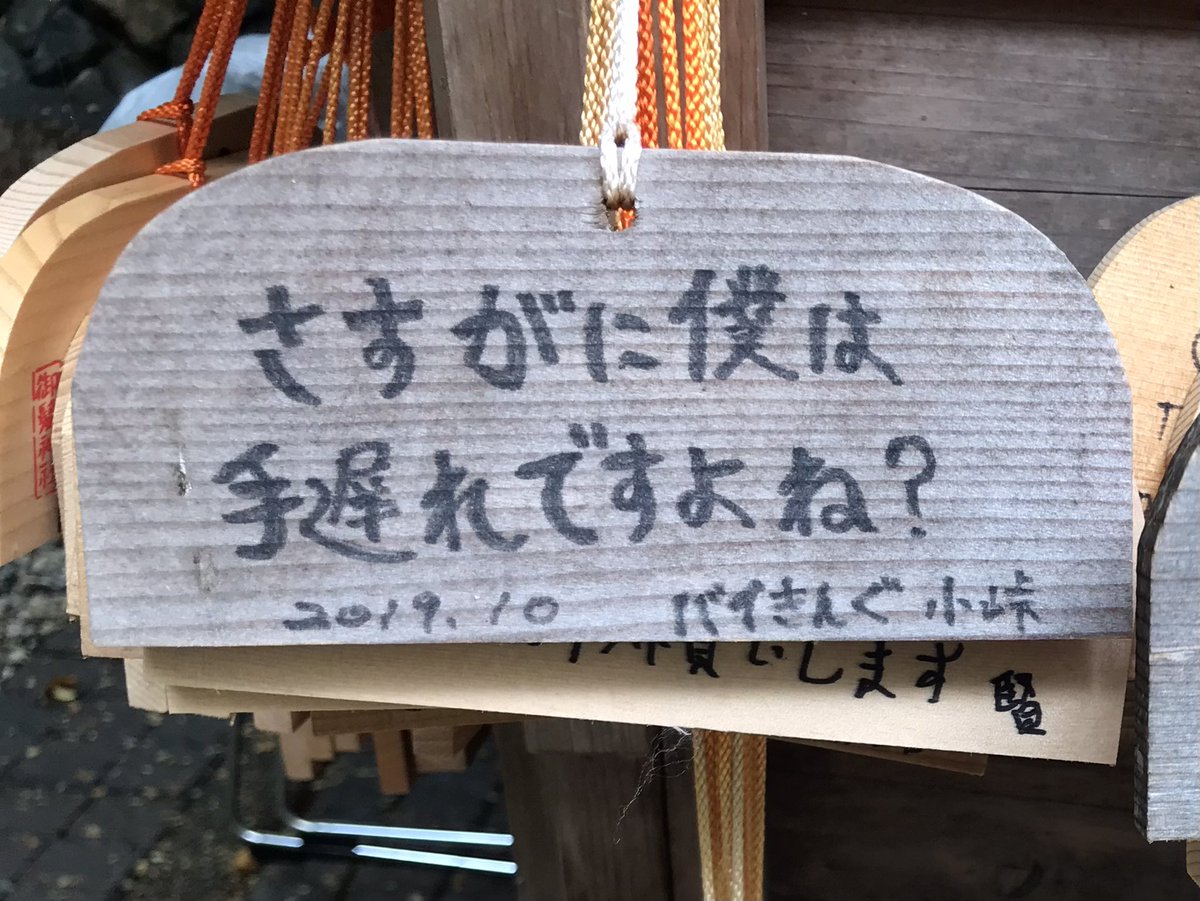 さすがに僕は
手遅れですよね?
2019.10 バイきんぐ 小峠
願いします
賢
御髪神社